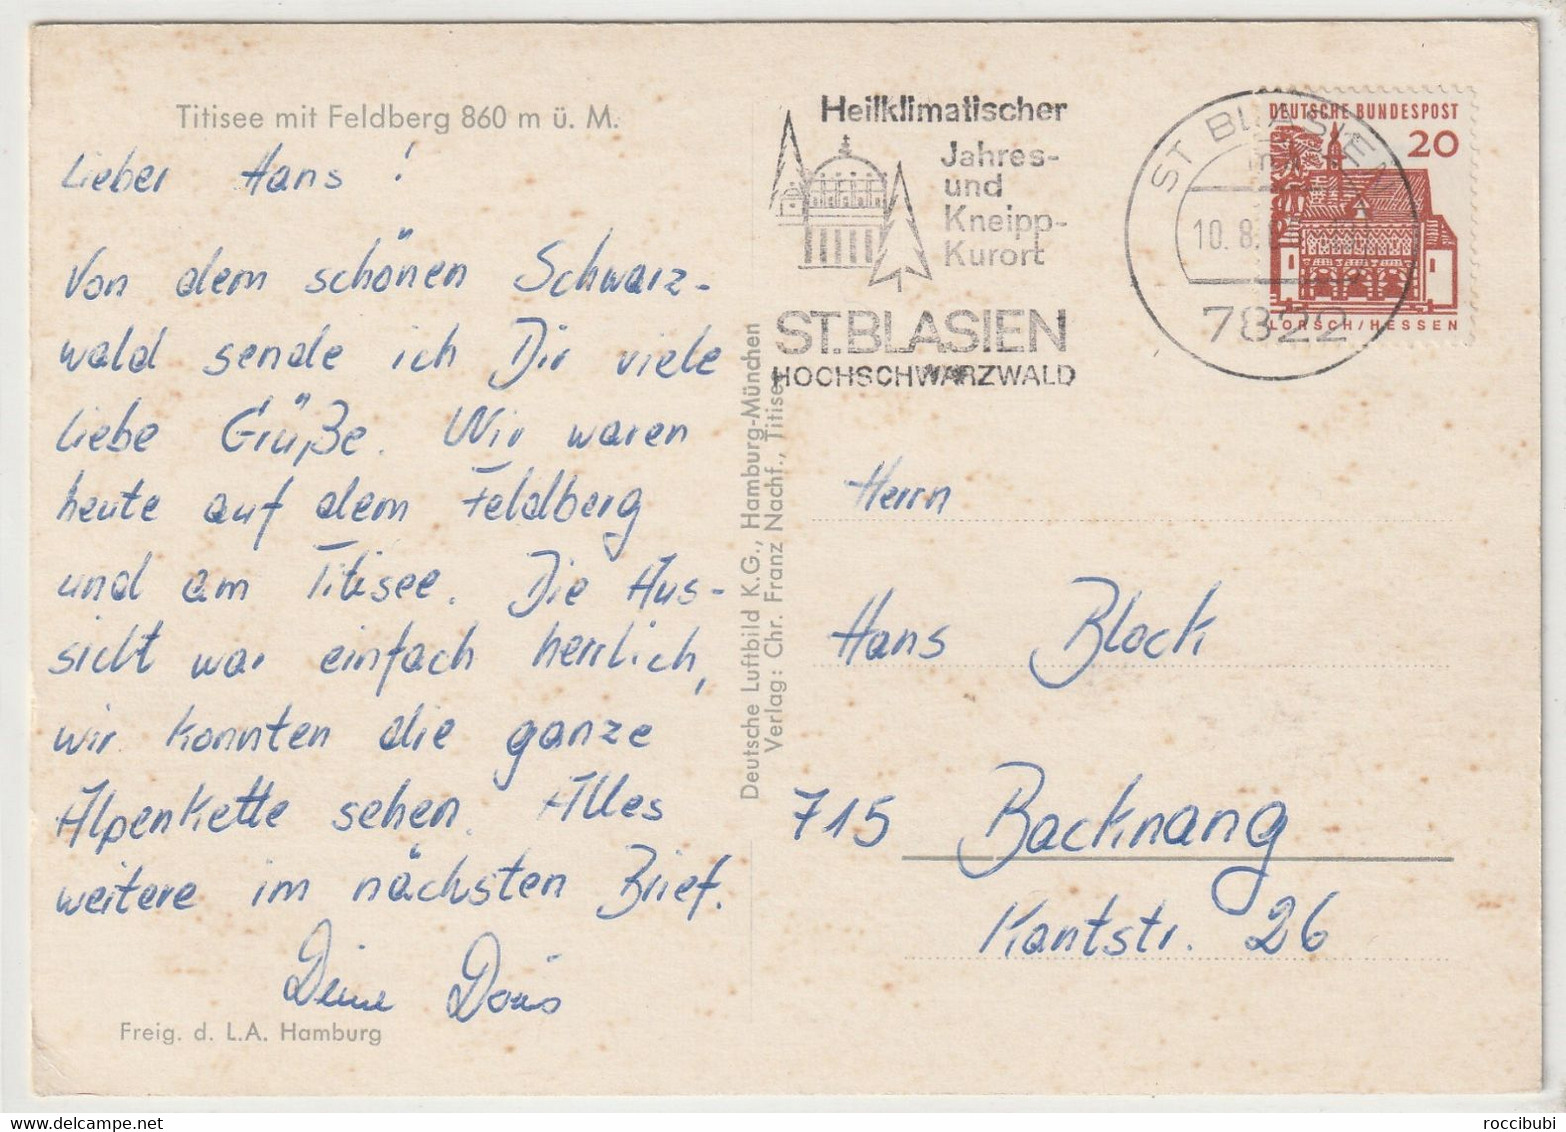 Titisee mit Feldberg 860 m ü. M.
Lieber Hans!
Von dem schönen Schwarz-
wald sende ich Dir viele
liebe Grüße. Wir waren
heute auf dem Feldberg
und am Titisee. Die Aus-
sicht war einfach herrlich,
wir konnten die ganze
Alpenkette sehen. Alles
weitere im nächsten Brief.
Deine Doris
Freig. d. L.A. Hamburg
Deutsche Luftbild K.G., Hamburg-München
Verlag: Chr. Franz Nachf., Titisee
Heilklimatischer
Jahres-
und
Kneipp-
Kurort
ST. BLASIEN
HOCHSCHWARZWALD
ST BLASIEN
10.8.
7822
DEUTSCHE BUNDESPOST
20
LORSCH/HESSEN
Herrn
Hans Block
715 Backnang
Kantstr. 26
roccibubi